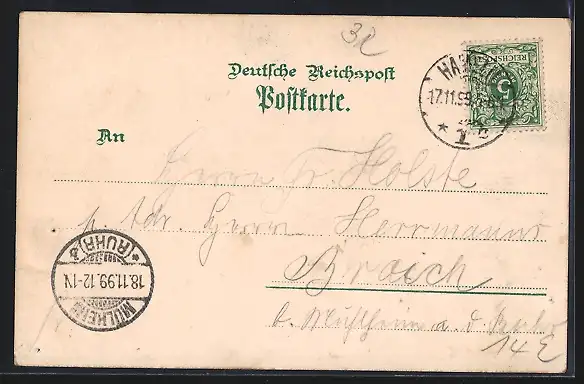 32
Deutsche Reichspost
Postkarte.
REICHSPOST
5
17.11.99
* 1 c
An
Herrn Fr. Holste
p. Adr. Herrn Herrmanns
Broich
b. Mülheim a. d. Ruhr
14 E
MÜLHEIM
18.11.99. 12-1N
* (RUHR) 3